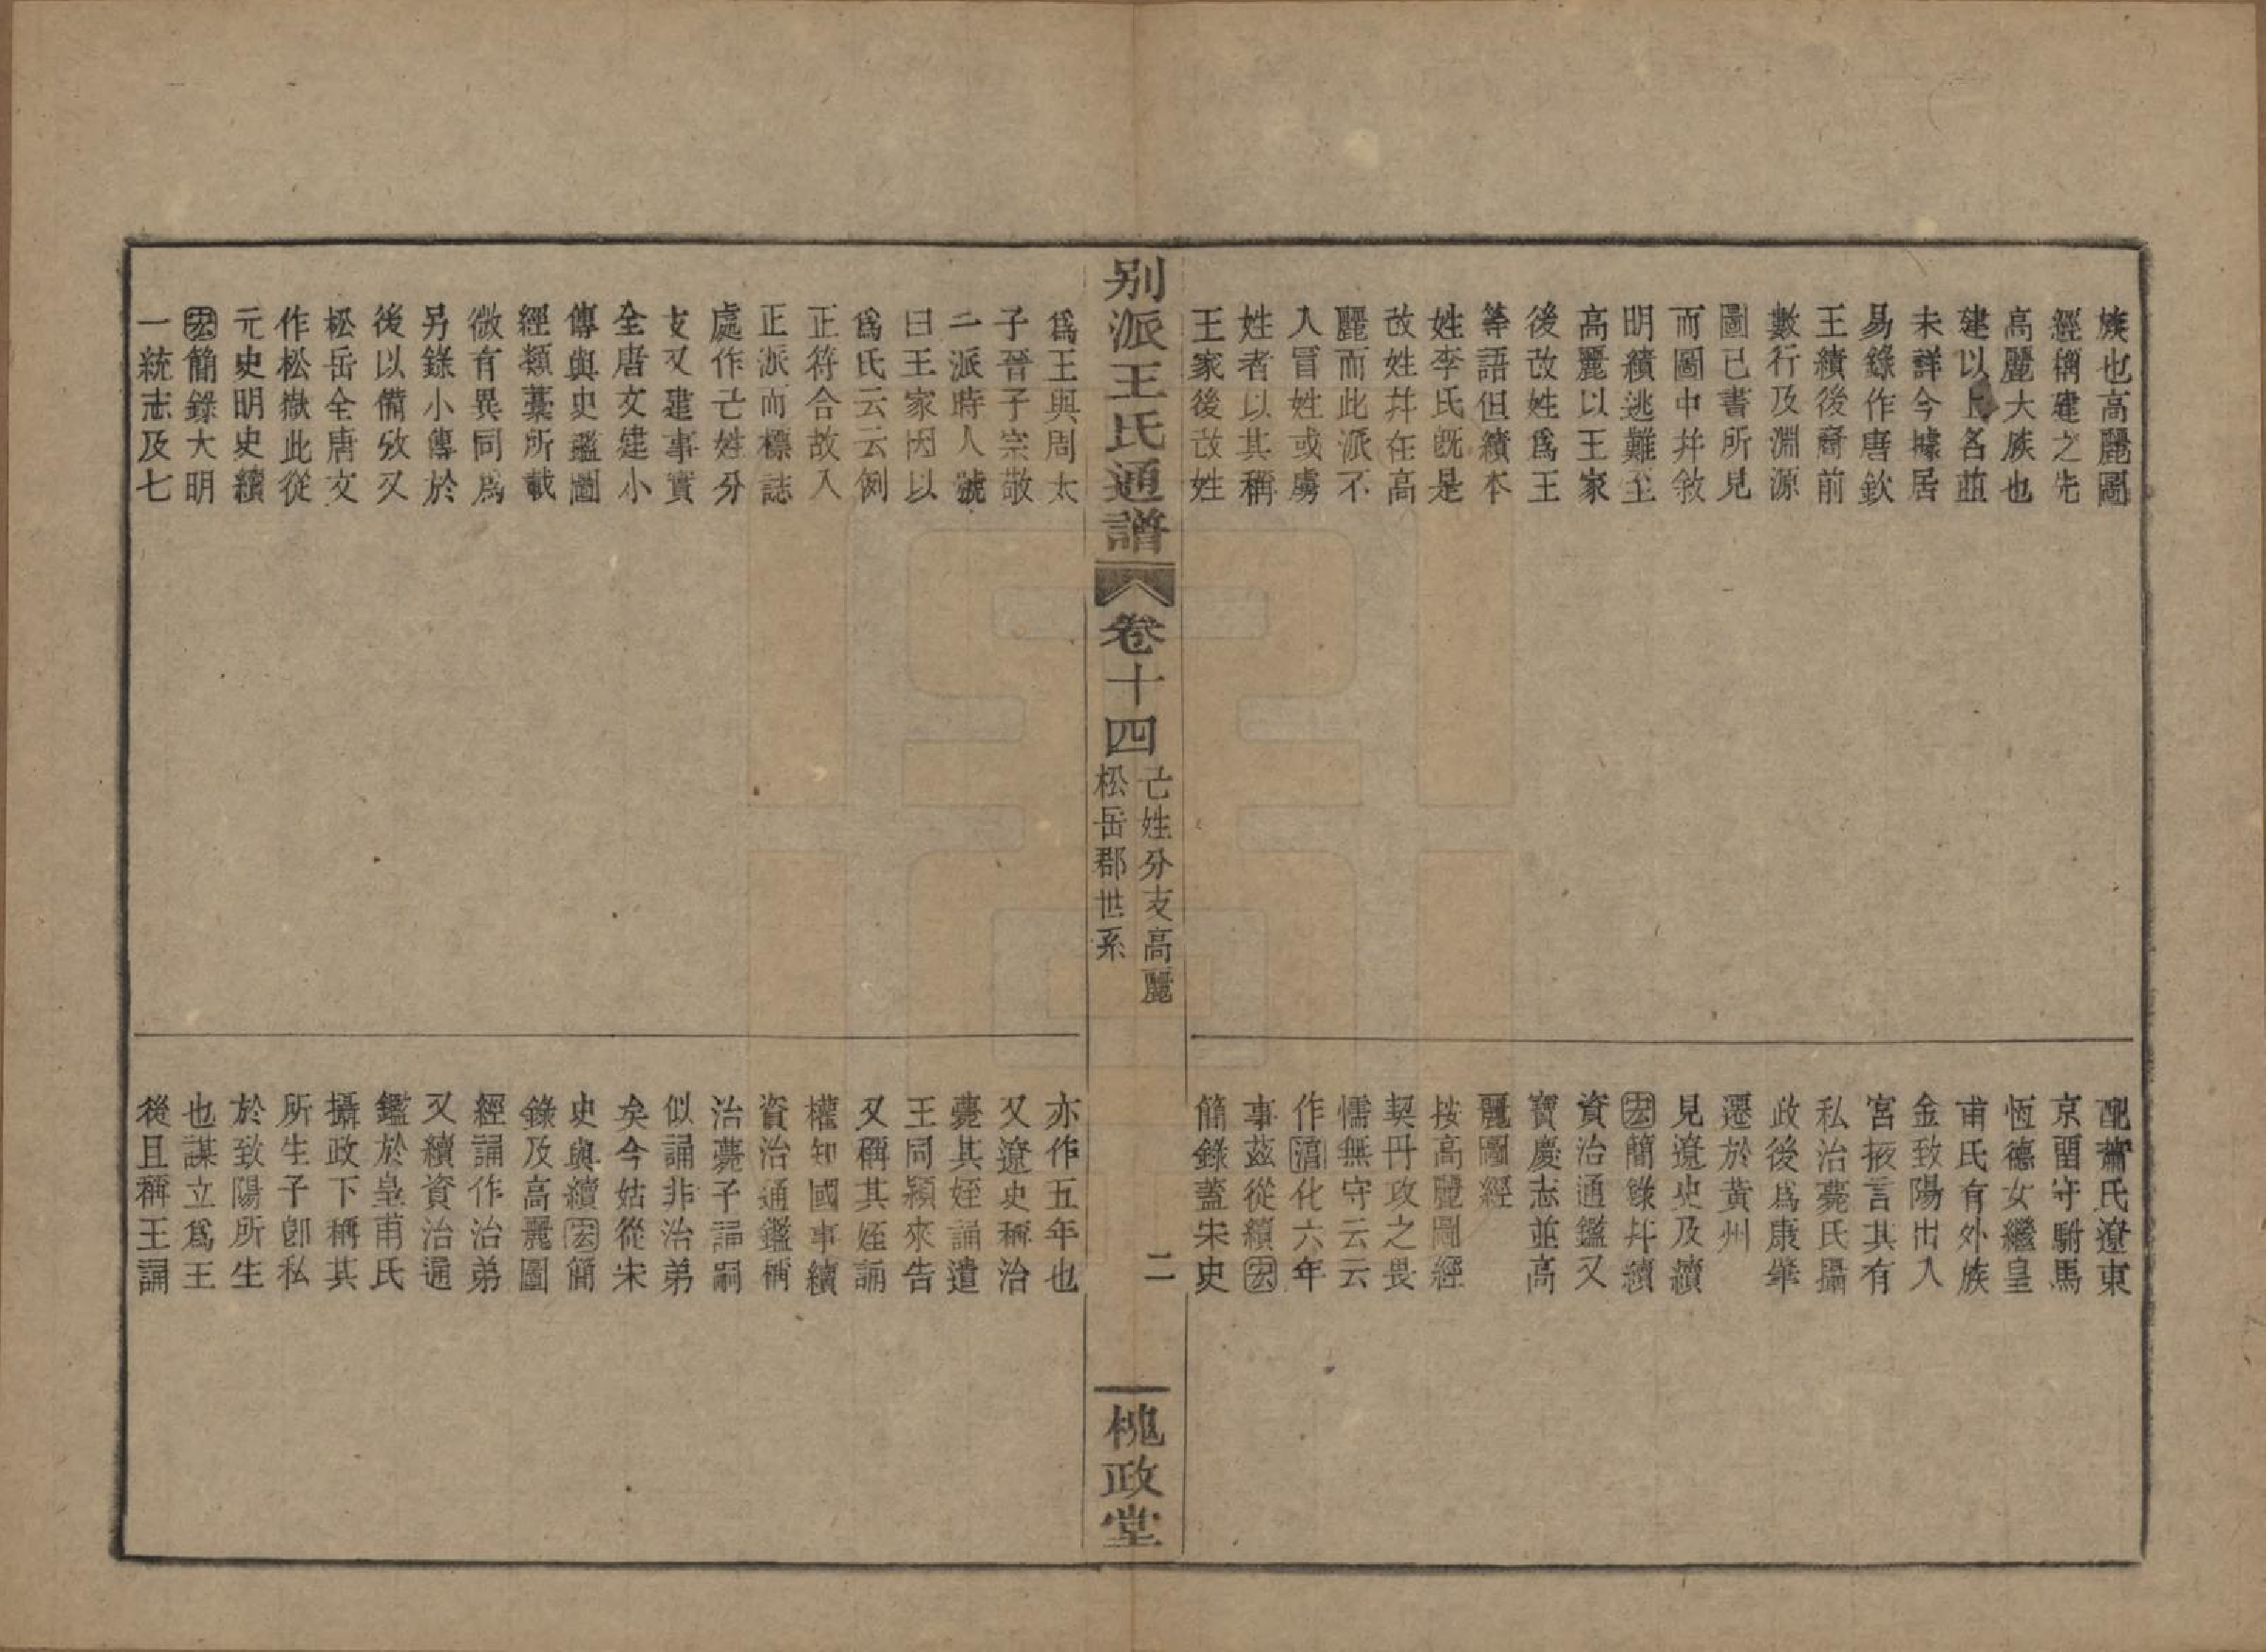 族也高麗圖
經稱建之先
高麗大族也
建以上名並
未詳今據居
易錄作唐欽
王績後裔前
數行及淵源
圖已書所見
而圖中并敘
明績逃難至
高麗以王家
後改姓爲王
等語但績本
姓李氏既是
改姓并在高
麗而此派不
入冒姓或虜
姓者以其稱
王家後改姓
配蕭氏遼東
京留守駙馬
恆德女繼皇
甫氏有外族
金致陽出入
宮掖言其有
私治薨氏攝
政後爲康肇
遷於黃州
見遼史及續
宏簡錄并續
資治通鑑又
寶慶志並高
麗圖經
按高麗圖經
契丹攻之畏
懦無守云云
作淳化六年
事茲從續宏
簡錄蓋宋史
别派王氏通譜
卷十四
亡姓分支高麗
松岳郡世系
二
槐政堂
爲王與周太
子晉子宗敬
二派時人號
曰王家因以
爲氏云云例
正符合故入
正派而標誌
處作亡姓分
支又建事實
全唐文建小
傳與史鑑圖
經類藁所載
微有異同爲
另錄小傳於
後以備攷又
松岳全唐文
作松嶽此從
元史明史續
宏簡錄大明
一統志及七
亦作五年也
又遼史稱治
薨其姪誦遣
王同穎來告
又稱其姪誦
權知國事續
資治通鑑稱
治薨子誦嗣
似誦非治弟
矣今姑從宋
史與續宏簡
錄及高麗圖
經誦作治弟
又續資治通
鑑於皇甫氏
攝政下稱其
所生子卽私
於致陽所生
也謀立爲王
後且稱王誦